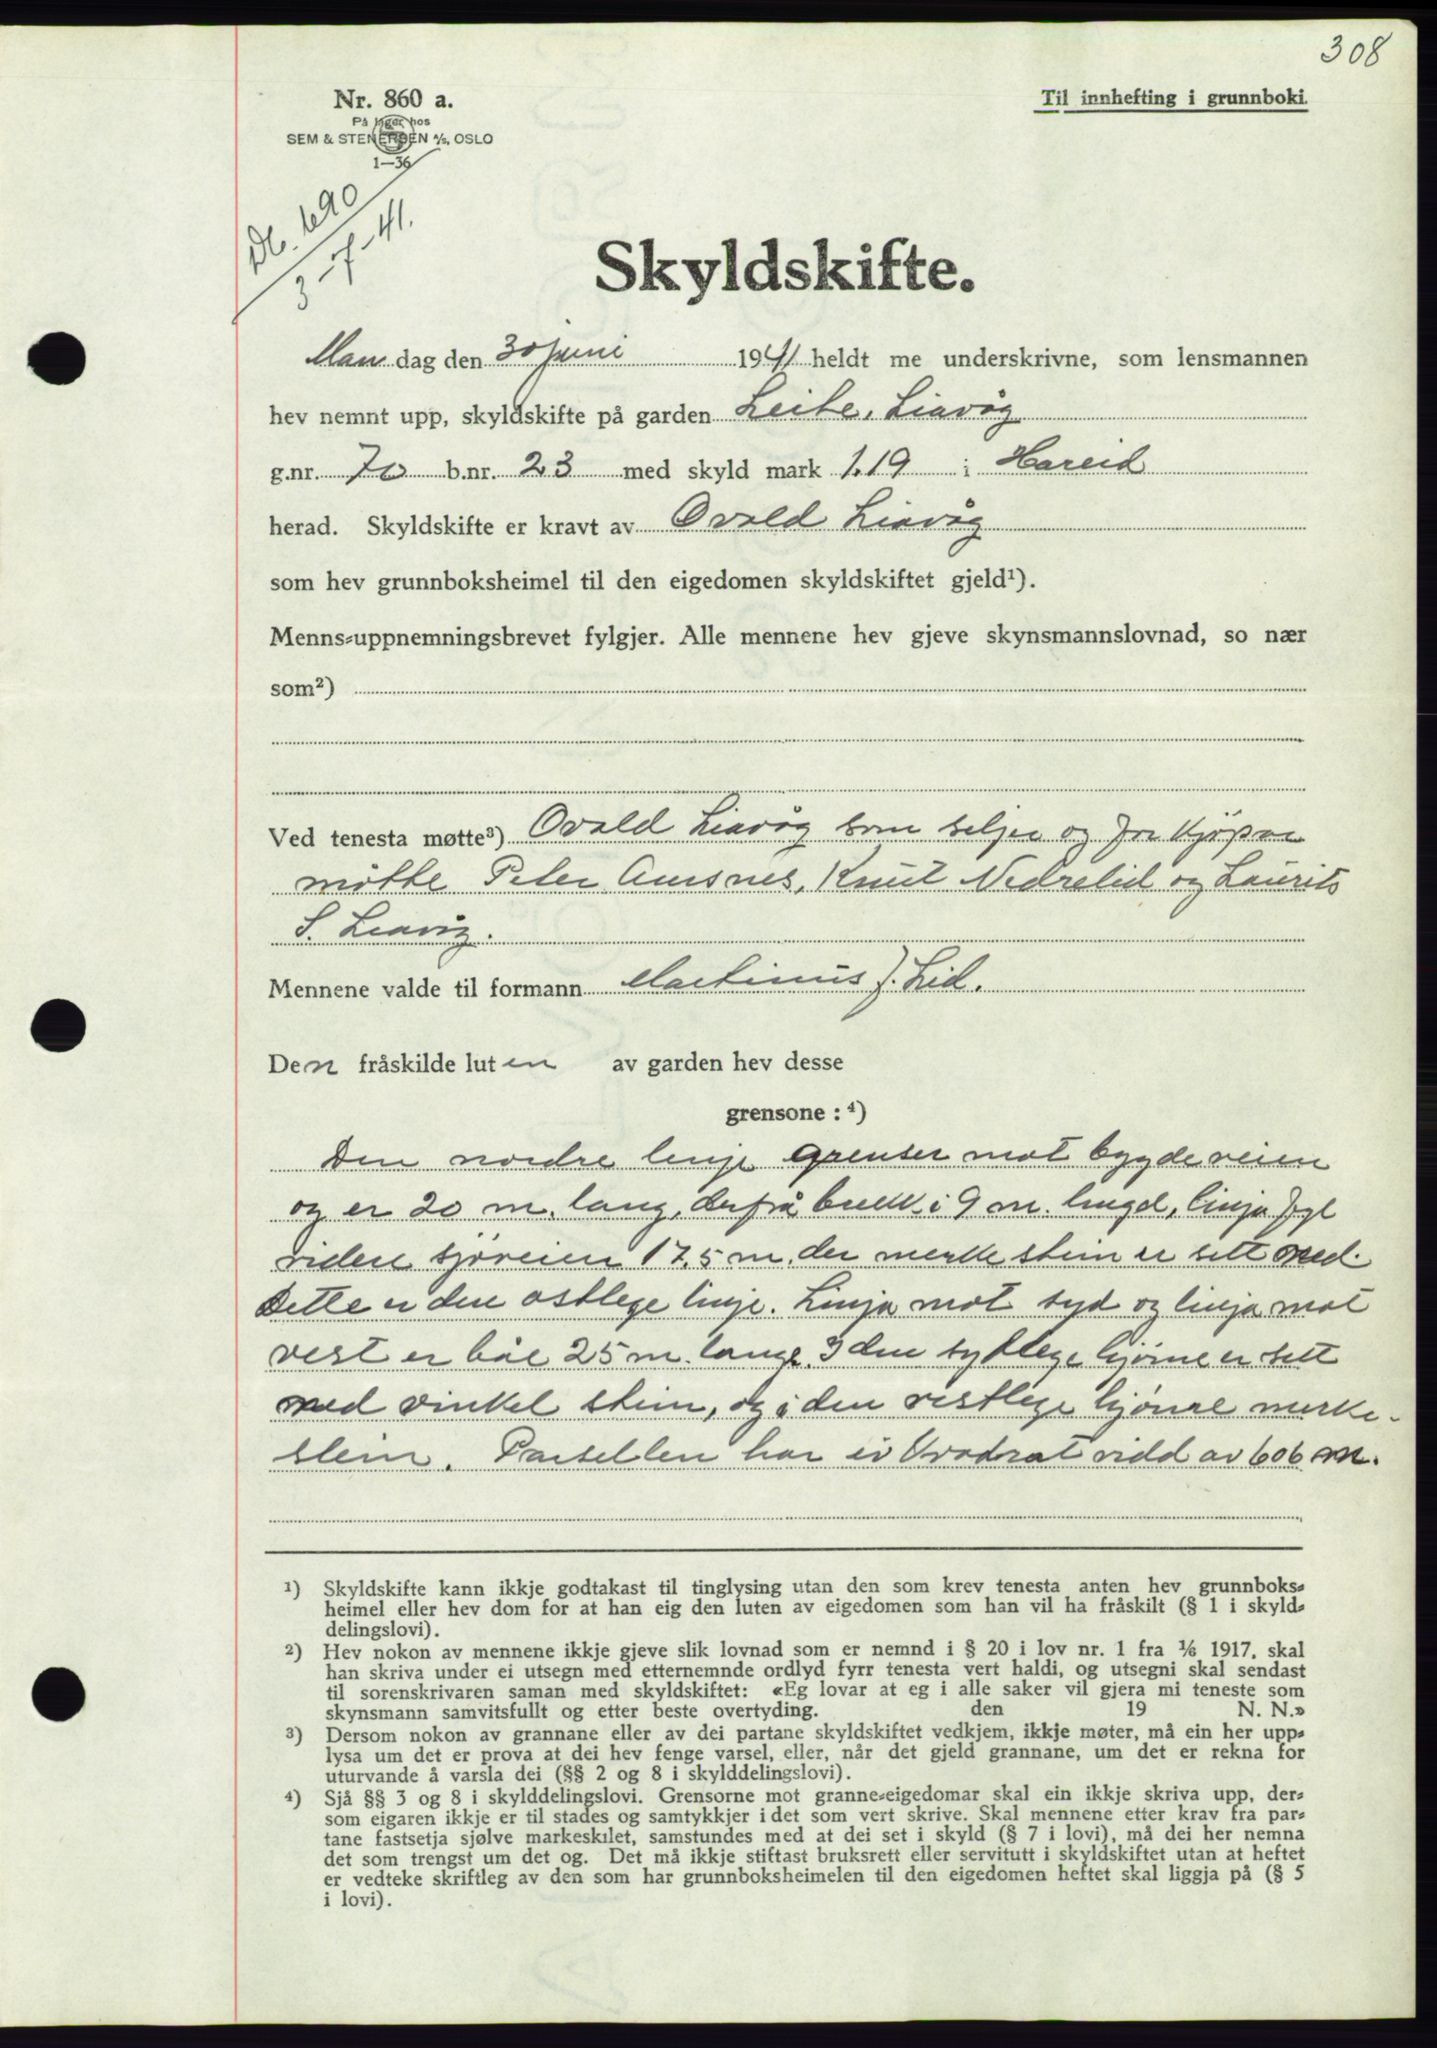 308
Nr. 860 a.
Til innhefting i grunnboki.
På lager hos
SEM & STENERSEN A/S, OSLO
1—36
Db. 690
3-7-41.
Skyldskifte.
Mandag den 30 juni 1941 heldt me underskrivne, som lensmannen
hev nemnt upp, skyldskifte på garden Leite, Liavåg
g.nr. 70 b.nr. 23 med skyld mark 1.19 i Hareid
herad. Skyldskifte er kravt av Ovald Liavåg
som hev grunnboksheimel til den eigedomen skyldskiftet gjeld¹).
Menns-uppnemningsbrevet fylgjer. Alle mennene hev gjeve skynsmannslovnad, so nær
som²)
Ved tenesta møtte³) Ovald Liavåg som seljer og for kjøparen
møtte Peter Aursnes, Knut Nedrelid og Laurits
S. Liavåg.
Mennene valde til formann Martinus J. Lid.
Den fråskilde luten av garden hev desse
grensone: ⁴)
Den nordre linje grenser mot bygdeveien
og er 20 m. lang, derfrå brekk i 9 m. lengd, linja fygl
videre sjøveien 17,5 m. der merkestein er sett ned.
Dette er den ostlege linje. Linja mot syd og linja mot
vest er båe 25 m. lange. I den sydlege hjørne er sett
ned vinkel stein, og i den vestlege hjørne merke-
stein. Parsellen har ei kvadrat vidd av 606 m.
¹) Skyldskifte kann ikkje godtakast til tinglysing utan den som krev tenesta anten hev grunnboks-
heimel eller hev dom for at han eig den luten av eigedomen som han vil ha fråskilt (§ 1 i skyld-
delingslovi).
²) Hev nokon av mennene ikkje gjeve slik lovnad som er nemnd i § 20 i lov nr. 1 fra 1/6 1917, skal
han skriva under ei utsegn med etternemnde ordlyd fyrr tenesta vert haldi, og utsegni skal sendast
til sorenskrivaren saman med skyldskiftet: «Eg lovar at eg i alle saker vil gjera mi teneste som
skynsmann samvitsfullt og etter beste overtyding. den 19 N. N.»
³) Dersom nokon av grannane eller av dei partane skyldskiftet vedkjem, ikkje møter, må ein her upp-
lysa um det er prova at dei hev fenge varsel, eller, når det gjeld grannane, um det er rekna for
uturvande å varsla dei (§§ 2 og 8 i skylddelingslovi).
⁴) Sjå §§ 3 og 8 i skylddelingslovi. Grensorne mot granne-eigedomar skal ein ikkje skriva upp, der-
som eigaren ikkje er til stades og samtykkjer i det som vert skrive. Skal mennene etter krav fra par-
tane fastsetja sjølve markeskilet, samstundes med at dei set i skyld (§ 7 i lovi), må dei her nemna
det som trengst um det og. Det må ikkje stiftast bruksrett eller servitutt i skyldskiftet utan at heftet
er vedteke skriftleg av den som har grunnboksheimelen til den eigedomen heftet skal liggja på (§ 5
i lovi).